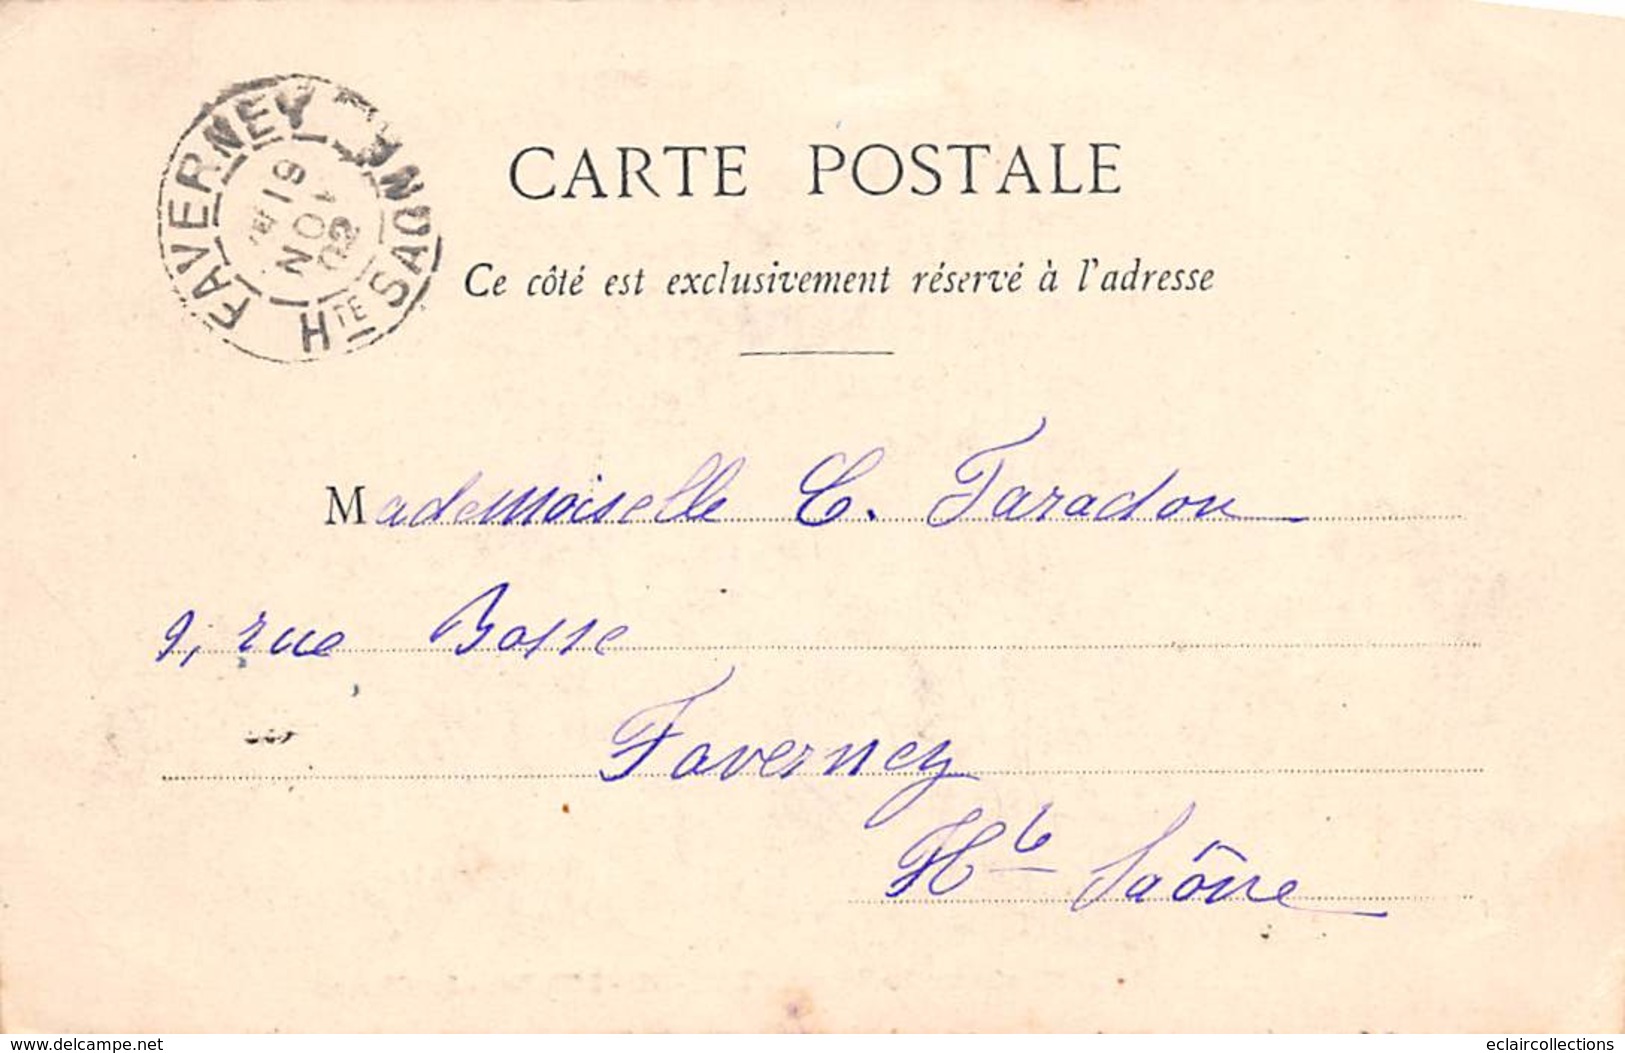 FAVERNEY
Hte SAONE
CARTE POSTALE
Ce côté est exclusivement réservé à l'adresse
Mademoiselle C. Taradou
9, rue Bosse
Faverney
Hte Saône
www.delcampe.net
eclaircollections